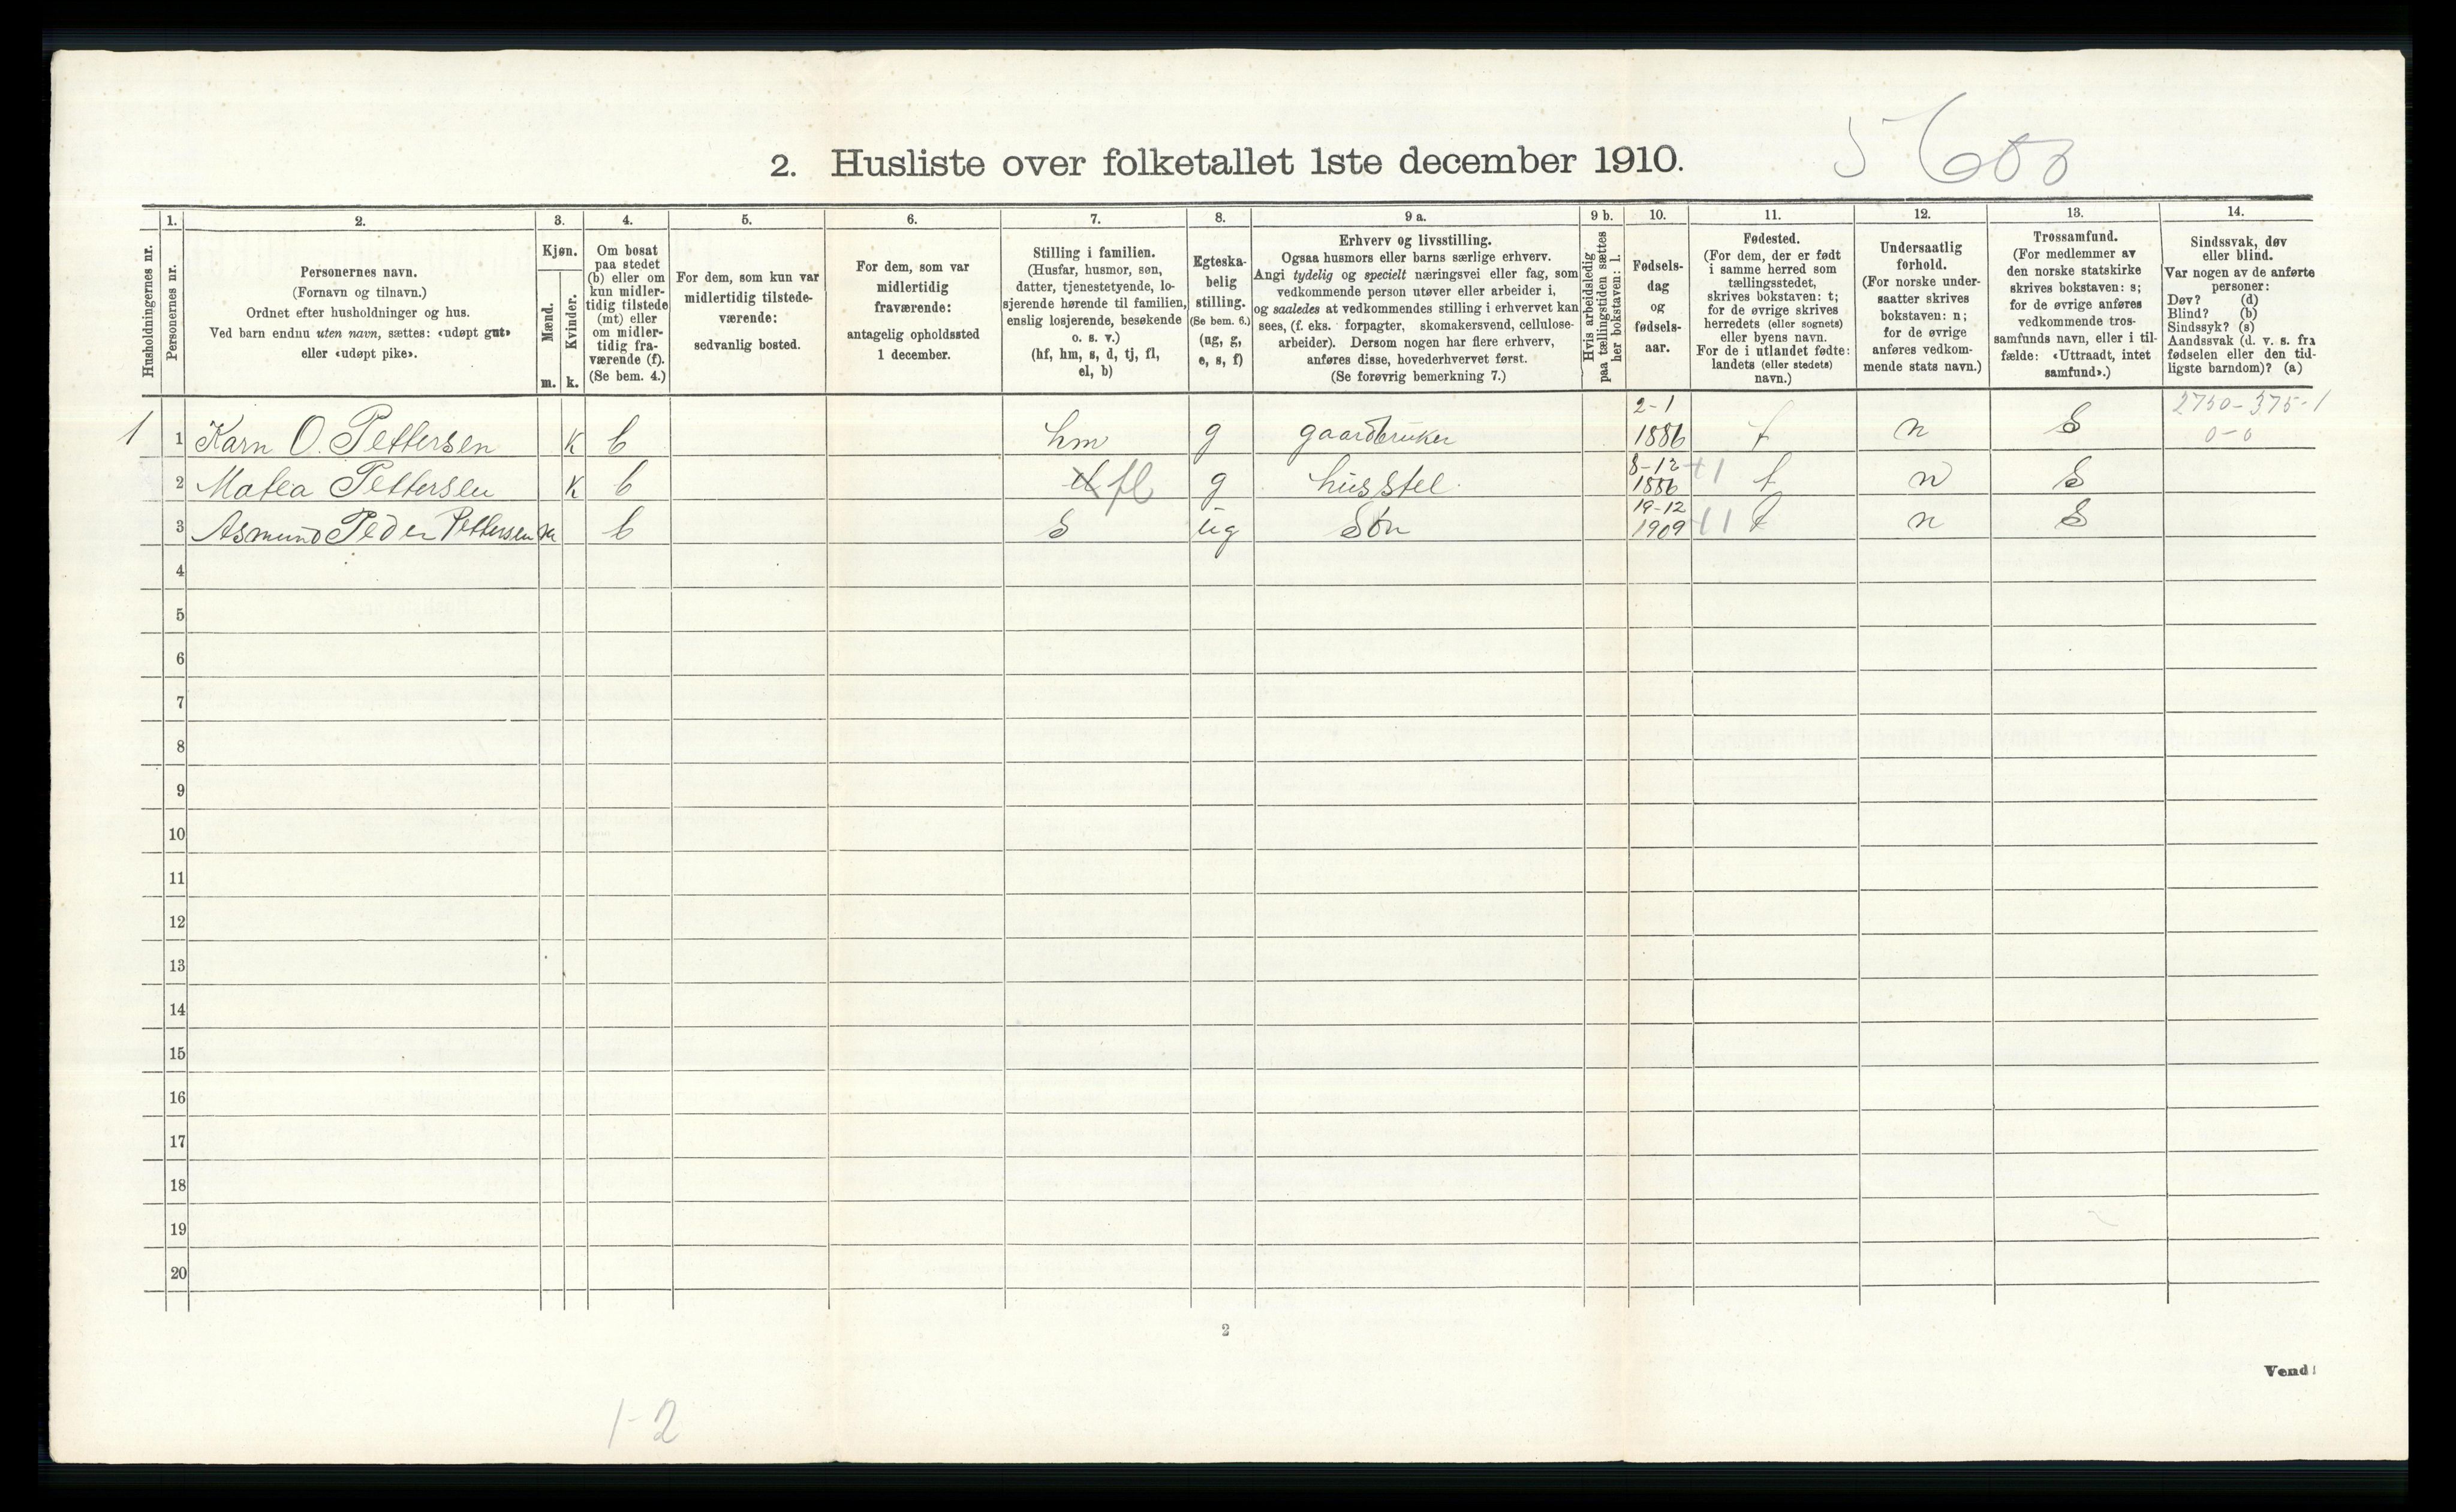 2. Husliste over folketallet 1ste december 1910.
Husholdningernes nr.
1.
Personernes nr.
2.
Personernes navn.
(Fornavn og tilnavn.)
Ordnet efter husholdninger og hus.
Ved barn endnu uten navn, sættes: «udøpt gut»
eller «udøpt pike».
3.
Kjøn.
Mænd.
Kvinder.
m. k.
4.
Om bosat
paa stedet
(b) eller om
kun midler-
tidig tilstede
(mt) eller
om midler-
tidig fra-
værende (f).
(Se bem. 4.)
5.
For dem, som kun var
midlertidig tilstede-
værende:
sedvanlig bosted.
6.
For dem, som var
midlertidig
fraværende:
antagelig opholdssted
1 december.
7.
Stilling i familien.
(Husfar, husmor, søn,
datter, tjenestetyende, lo-
sjerende hørende til familien,
enslig losjerende, besøkende
o. s. v.)
(hf, hm, s, d, tj, fl,
el, b)
8.
Egteska-
belig
stilling.
(Se bem. 6.)
(ug, g,
e, s, f)
9 a.
Erhverv og livsstilling.
Ogsaa husmors eller barns særlige erhverv.
Angi tydelig og specielt næringsvei eller fag, som
vedkommende person utøver eller arbeider i,
og saaledes at vedkommendes stilling i erhvervet kan
sees, (f. eks. forpagter, skomakersvend, cellulose-
arbeider). Dersom nogen har flere erhverv,
anføres disse, hovederhvervet først.
(Se forøvrig bemerkning 7.)
9 b.
Hvis arbeidsledig
paa tællingstiden sættes
her bokstaven: l.
10.
Fødsels-
dag
og
fødsels-
aar.
11.
Fødested.
(For dem, der er født
i samme herred som
tællingsstedet,
skrives bokstaven: t;
for de øvrige skrives
herredets (eller sognets)
eller byens navn.
For de i utlandet fødte:
landets (eller stedets)
navn.)
12.
Undersaatlig
forhold.
(For norske under-
saatter skrives
bokstaven: n;
for de øvrige
anføres vedkom-
mende stats navn.)
13.
Trossamfund.
(For medlemmer av
den norske statskirke
skrives bokstaven: s;
for de øvrige anføres
vedkommende tros-
samfunds navn, eller i til-
fælde: «Uttraadt, intet
samfund».)
14.
Sindssvak, døv
eller blind.
Var nogen av de anførte
personer:
Døv? (d)
Blind? (b)
Sindssyk? (s)
Aandssvak (d. v. s. fra
fødselen eller den tid-
ligste barndom)? (a)
2-1 2750-375-1
1 1 Karn O. Pettersen K b hm g gaardbruker 1886 t n S 0-0
8-12
2 Matea Pettersen K b d fl g husstel 1886 +1 t n S
19-12
3 Asmund Peder Pettersen m b S ug Søn 1909 +1 t n S
4
5
6
7
8
9
10
11
12
13
14
15
16
17
18
19
20
2
Vend!
1-2